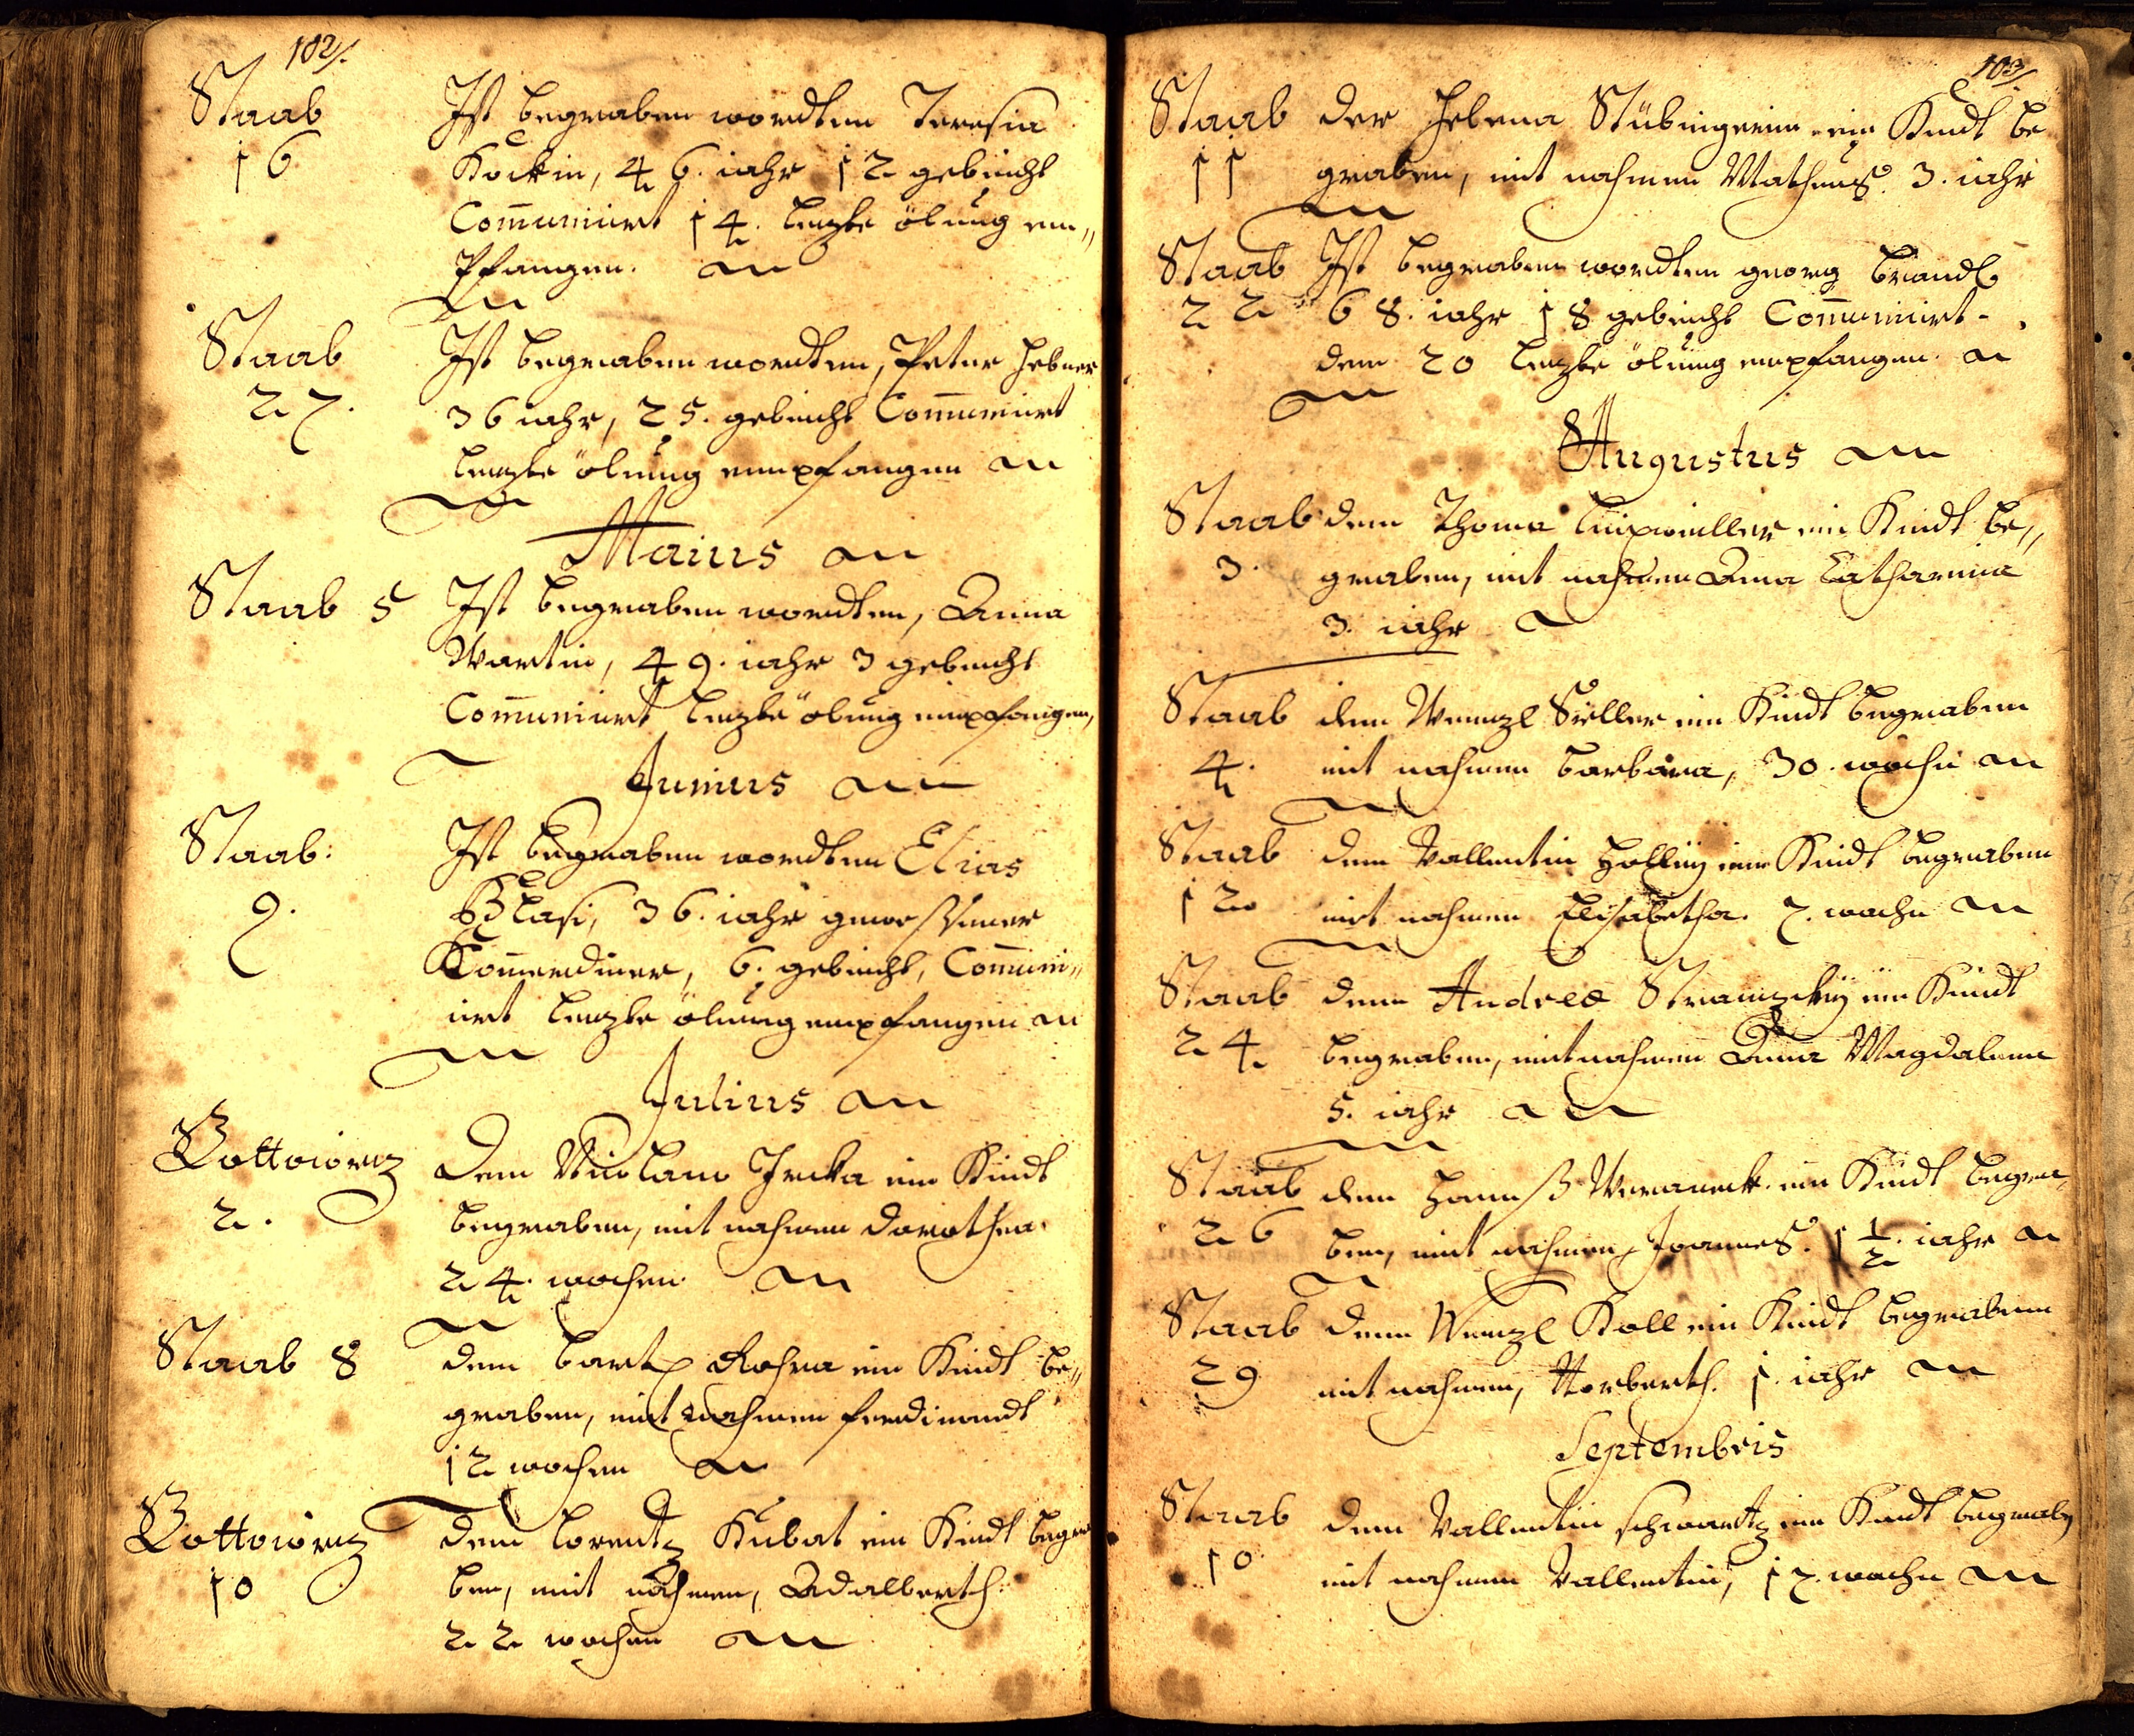 102/.
Staab Ist begraben wordten Teresia
16 Kockin, 46. iahr 12 gebeicht
Com̄uniciret 14. letzte ölung em„
pfangen.
Staab Ist begraben wordten, Peter Hebner
27. 36 iahr, 25. gebeicht Com̄uniciret
letzte ölung empfangen
Maius
Staab 5 Ist begraben wordten, Anna
Martin, 49. iahr 3 gebeicht
Com̄uniciret letzte ölung empfangen,
Junius
Staab: Ist begraben wordten Elias
9. Blasi, 36. iahr gewesener
6. gebeicht, Com̄uni„
ciret letzte ölung empfangen
Julius
Dem Nicolauo Jrcka ein Kindt
2. begraben, mit nahmen Dorothea.
24. wochen
Staab 8 dem Bartl ein Kindt be„
graben, mit nahmen Ferdinandt
12 wochen
dem Lorentz Kubat ein Kindt begra
10 ben, mit nahmen, Adalberth.
22 wochen
103/.
Staab der Helena Stübingerin ein Kindt be
11 graben, mit nahmen Matheus. 3. iahr
Staab Ist begraben wordten georg Brandl
22 68. iahr 18 gebeicht Com̄uniciret
dem 20 letzte ölung empfangen.
Augustus
Staab dem Thoma ein Kindt be„
3. graben, mit nahmen Anna Catharina
3. iahr
Staab dem Wenzl Sieller ein Kindt begraben
4. mit nahmen Barbara, 30. wochn
Staab dem Vallentin ein Kindt begraben
12 mit nahmen Elisabetha. 7. wochn
Staab dem Andreæ ein Kindt
24 begraben, mit nahmen Anna Magdalena
5. iahr
Staab dem Hannß ein Kindt begra„
26 ben, mit nahmen Joannes. 1 1/2. iahr
Staab dem Wenzl Koll ein Kindt begraben
29 mit nahmen, Norberth. 1. iahr
Septembris
Staab dem Vallentin Schwartz ein Kindt begraben
10 mit nahmen Vallentin, 17. wochn